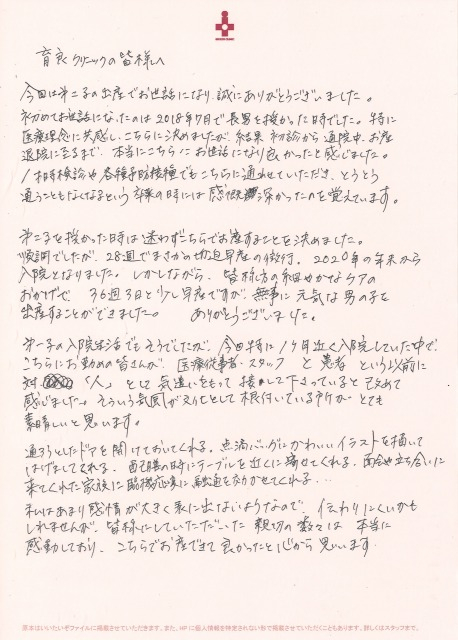 育良クリニックの皆様へ
今回は第二子の出産でお世話になり、誠にありがとうございました。
初めてお世話になったのは2018年7月で長男を授かった時でした。特に
医療理念に共感し、こちらに決めましたが、結果 初診から通院中、お産
退院に至るまで、本当にこちらにお世話になり良かったと感じました。
1ヶ月検診や各種予防接種でもこちらに通わせていただき、とうとう
通うこともなくなるという卒業の時には感慨深かったのを覚えています。
第二子を授かった時は迷わずこちらでお産することを決めました。
順調でしたが、28週でまさかの切迫早産の診断。2020年の年末から
入院となりました。しかしながら、皆様方の細やかなケアの
おかげで 36週3日と少し早産ですが、無事に元気な男の子を
出産することができました。 ありがとうございました。
第一子の入院生活でもそうでしたが、今回特に1ヶ月近く入院していた中で
こちらにお勤めの皆さんが、医療従事者・スタッフ と 患者 という以前に
対「人」として気遣いをもって接して下さっていると改めて
感じました。そういう気風が文化として根付いている所がとても
素晴しいと思います。
通ろうとしたドアを開けておいてくれる、点滴バッグにかわいいイラストを描いて
はげましてくれる、配膳の時にテーブルを近くに寄せてくれる、面会や立ち合いに
来てくれた家族に臨機応変に融通を効かせてくれる…
私はあまり感情が大きく表に出ないようなので、伝わりにくいかも
しれませんが、皆様にしていただいた 親切の数々は 本当に
感動しており、こちらでお産できて良かったと心から思います。
原本はいいたいぞファイルに掲載させていただきます。また、HPに個人情報を特定されない形で掲載させていただくこともあります。詳しくはスタッフまで。